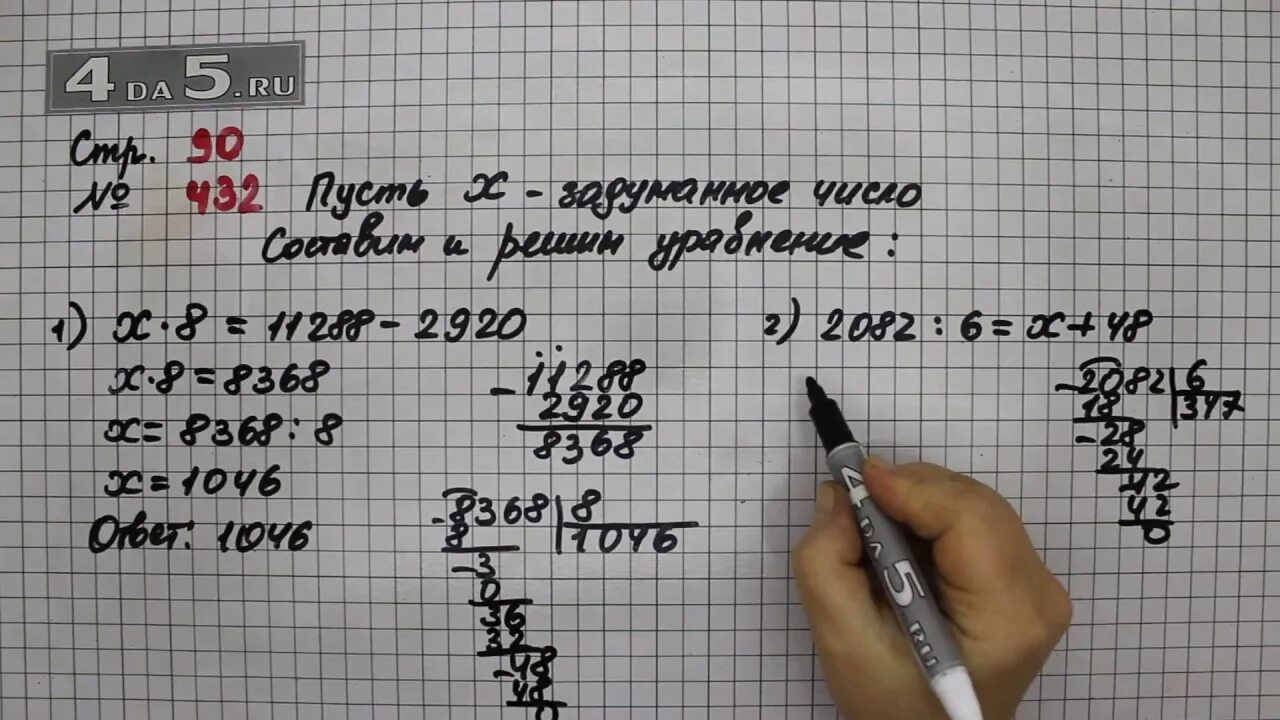 4DA5.RU
Стр. 90
№ 432 Пусть х - задуманное число
Составим и решим уравнение:
1) х·8 = 11288 - 2920
х·8 = 8368
х = 8368 : 8
х = 1046
Ответ: 1046
- 11288
2920
8368
- 8368 | 8
8 1046
- 3
0
36
32
- 48
48
0
2) 2082 : 6 = х + 48
- 2082 | 6
18 347
- 28
24
42
42
0
4DA5.RU